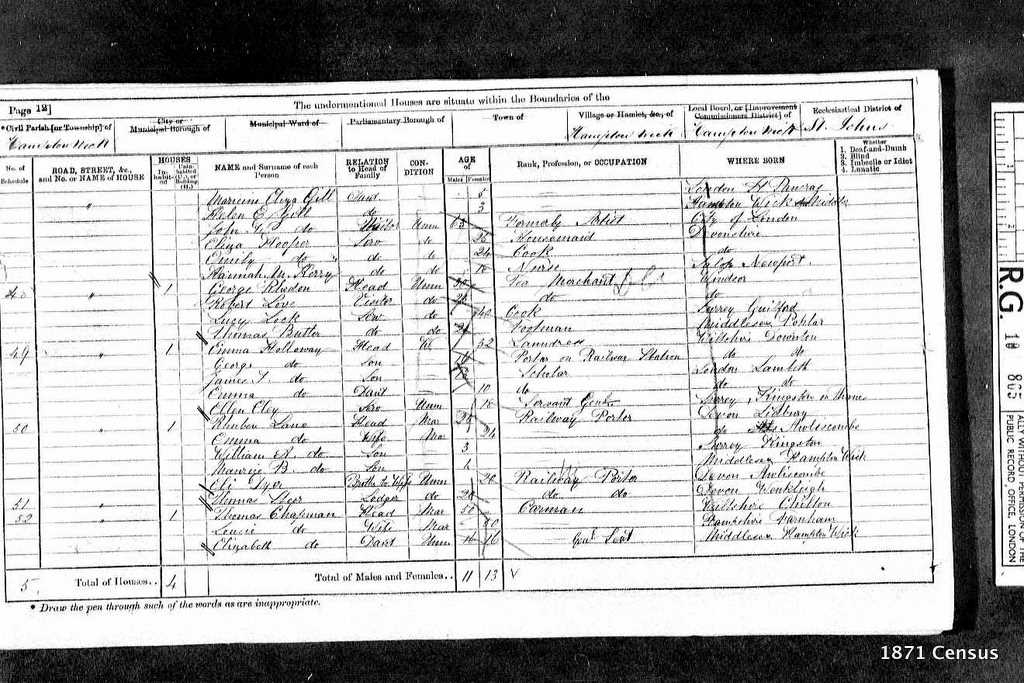 Page 12]
The undermentioned Houses are situate within the Boundaries of the
*Civil Parish [or Township] of
City or Municipal Borough of
Municipal Ward of
Parliamentary Borough of
Town of
Village or Hamlet, &c., of
Local Board, or [Improvement Commissioners District] of
Ecclesiastical District of
Hampton Wick
Hampton Wick
Hampton Wick
St. Johns
No. of Schedule
ROAD, STREET, &c., and No. or NAME of HOUSE
HOUSES
Inhabited
Uninhabited (U.), or Building (B.)
NAME and Surname of each Person
RELATION to Head of Family
CONDITION
AGE of
Males
Females
Rank, Profession, or OCCUPATION
WHERE BORN
Whether
1. Deaf-and-Dumb
2. Blind
3. Imbecile or Idiot
4. Lunatic
" Eliza Gill Daur. 5 London St Pancras
Helen E. Gill do 3 Hampton Wick
John do Visitor Unm 63 Formerly Artist City of London
Eliza Hooper Serv do 26 Housemaid Devonshire
Emily do do do 24 Cook do
Hannah M. do do 18 Nurse Newport
" 1 George Head Unm Tea Merchant Windsor
Robert Love Visitor do do do
Lucy Lock Ser. do 40 Cook Surrey Guilford
Thomas Butler do do Footman Middlesex Poplar
49 " 1 Emma Holloway Head 52 Laundress Wiltshire Downton
George do Son Porter on Railway Station do do
James T. do Son Scholar London Lambeth
Emma do Daur 10 do do do
Ellen Serv Unm 18 Servant Genl Surrey, Kingston on Thames
50 " 1 Lane Head Mar Railway Porter Devon
Emma do Wife Mar 24 do Awliscombe
William A. do Son 3 Surrey Kingston
B. do Son 1 Middlesex Hampton Wick
Eli Dyer Brother to Wife Unm 20 Railway Porter Devon Awliscombe
51 Thomas Lodger do 20 do do Devon
52 1 Thomas Chapman Head Mar Carman Wiltshire Chilton
do Wife Mar
Elizabeth do Daut Unm 16 Genl Servt Middlesex Hampton Wick
5 Total of Houses.. 4 Total of Males and Females.. 11 13
* Draw the pen through such of the words as are inappropriate.
R.G. 10
865
ALLY WITHOUT PERMISSION OF THE
PUBLIC RECORD OFFICE, LONDON
1
2
1871 Census